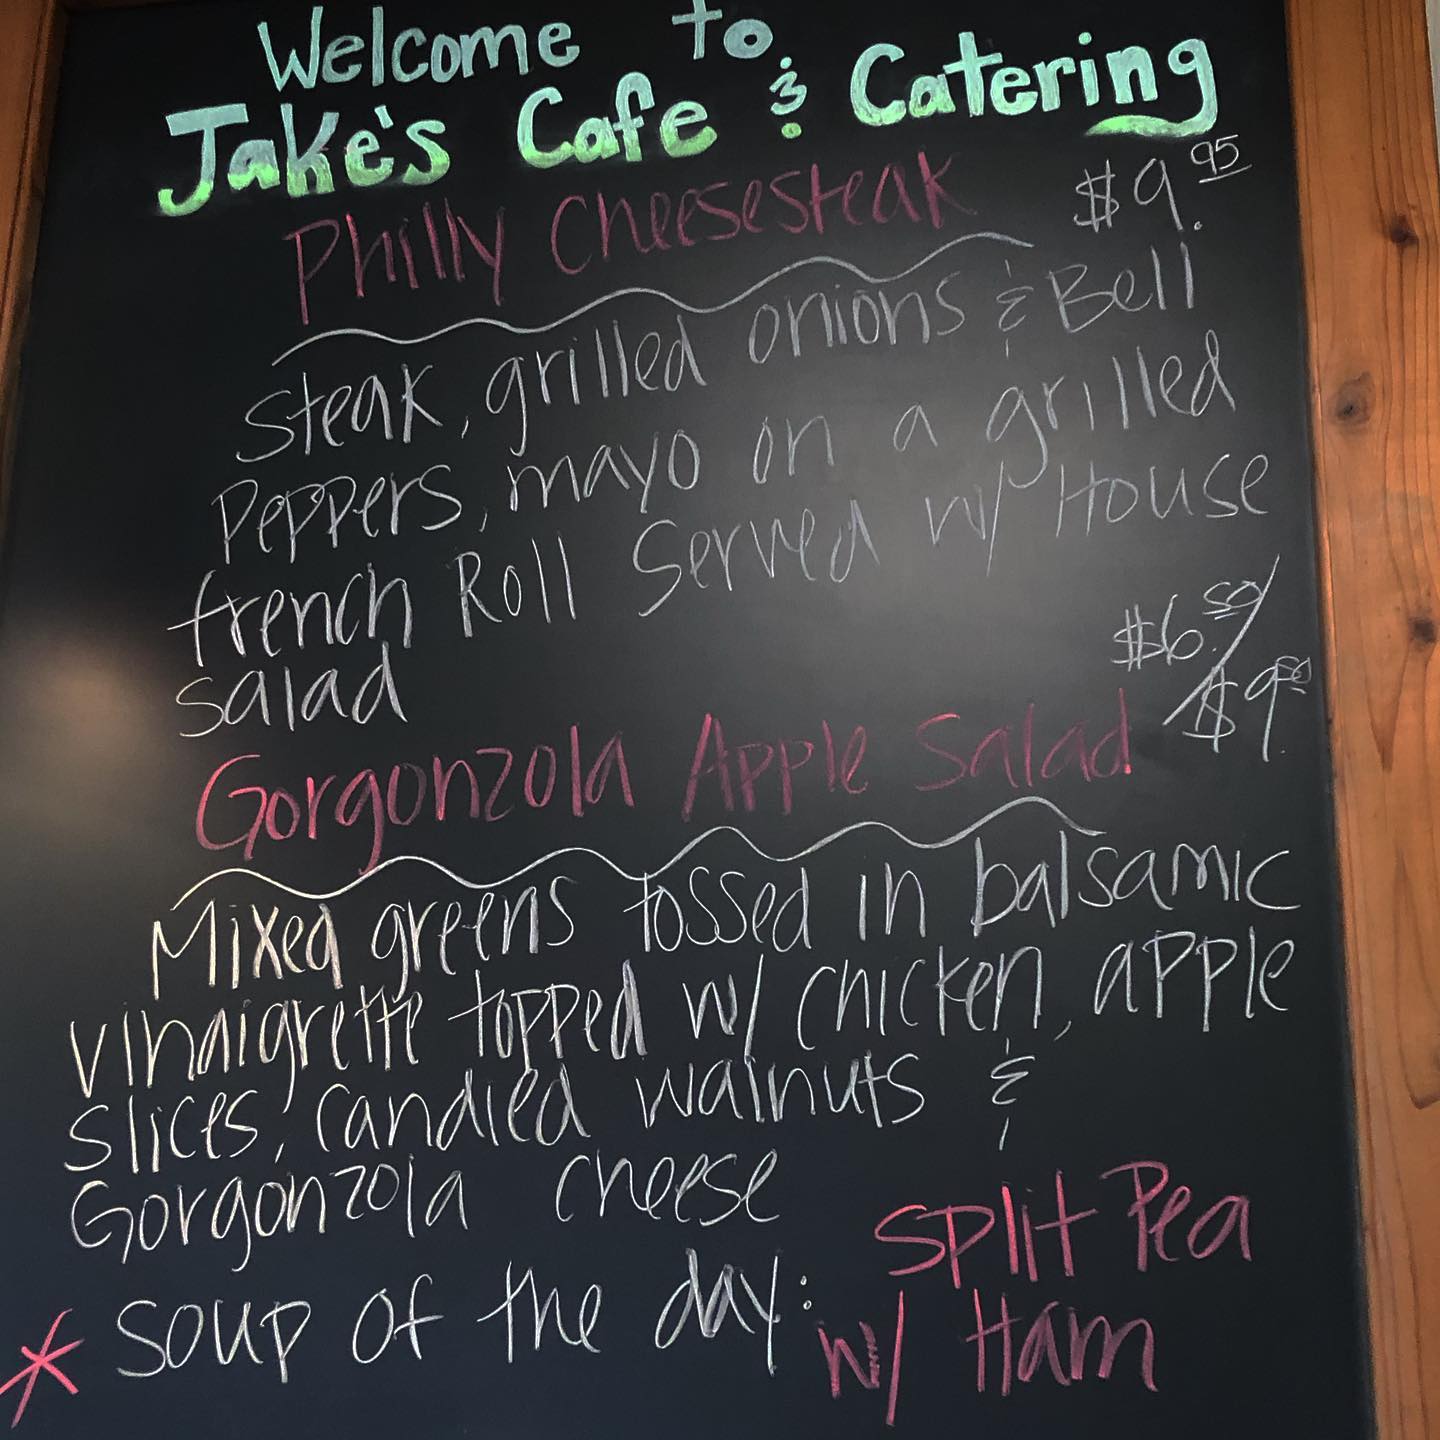 Welcome To
Jake's Cafe & Catering
Philly Cheesesteak $9.95
Steak, grilled onions & Bell
Peppers, mayo on a grilled
french Roll Served w/ House
salad
$6.50/
$9.50
Gorgonzola Apple Salad
Mixed greens tossed in balsamic
vinaigrette topped w/ chicken, apple
slices, candied walnuts &
Gorgonzola cheese
* Soup of the day: Split Pea
w/ Ham